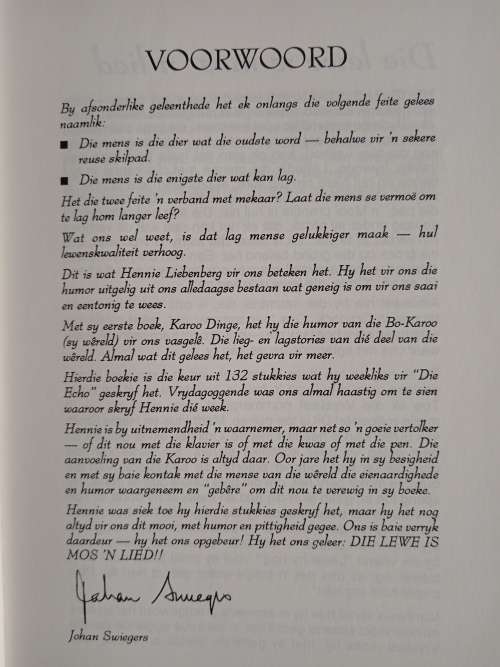 VOORWOORD
By afsonderlike geleenthede het ek onlangs die volgende feite gelees
naamlik:
■ Die mens is die dier wat die oudste word — behalwe vir 'n sekere
reuse skilpad.
■ Die mens is die enigste dier wat kan lag.
Het die twee feite 'n verband met mekaar? Laat die mens se vermoë om
te lag hom langer leef?
Wat ons wel weet, is dat lag mense gelukkiger maak — hul
lewenskwaliteit verhoog.
Dit is wat Hennie Liebenberg vir ons beteken het. Hy het vir ons die
humor uitgelig uit ons alledaagse bestaan wat geneig is om vir ons saai
en eentonig te wees.
Met sy eerste boek, Karoo Dinge, het hy die humor van die Bo-Karoo
(sy wêreld) vir ons vasgelê. Die lieg- en lagstories van dié deel van die
wêreld. Almal wat dit gelees het, het gevra vir meer.
Hierdie boekie is die keur uit 132 stukkies wat hy weekliks vir "Die
Echo" geskryf het. Vrydagoggende was ons almal haastig om te sien
waaroor skryf Hennie dié week.
Hennie is by uitnemendheid 'n waarnemer, maar net so 'n goeie vertolker
— of dit nou met die klavier is of met die kwas of met die pen. Die
aanvoeling van die Karoo is altyd daar. Oor jare het hy in sy besigheid
en met sy baie kontak met die mense van die wêreld die eienaardighede
en humor waargeneem en "gebêre" om dit nou te verewig in sy boeke.
Hennie was siek toe hy hierdie stukkies geskryf het, maar hy het nog
altyd vir ons dit mooi, met humor en pittigheid gegee. Ons is baie verryk
daardeur — hy het ons opgebeur! Hy het ons geleer: DIE LEWE IS
MOS 'N LIED!!
Johan Swiegers
Johan Swiegers